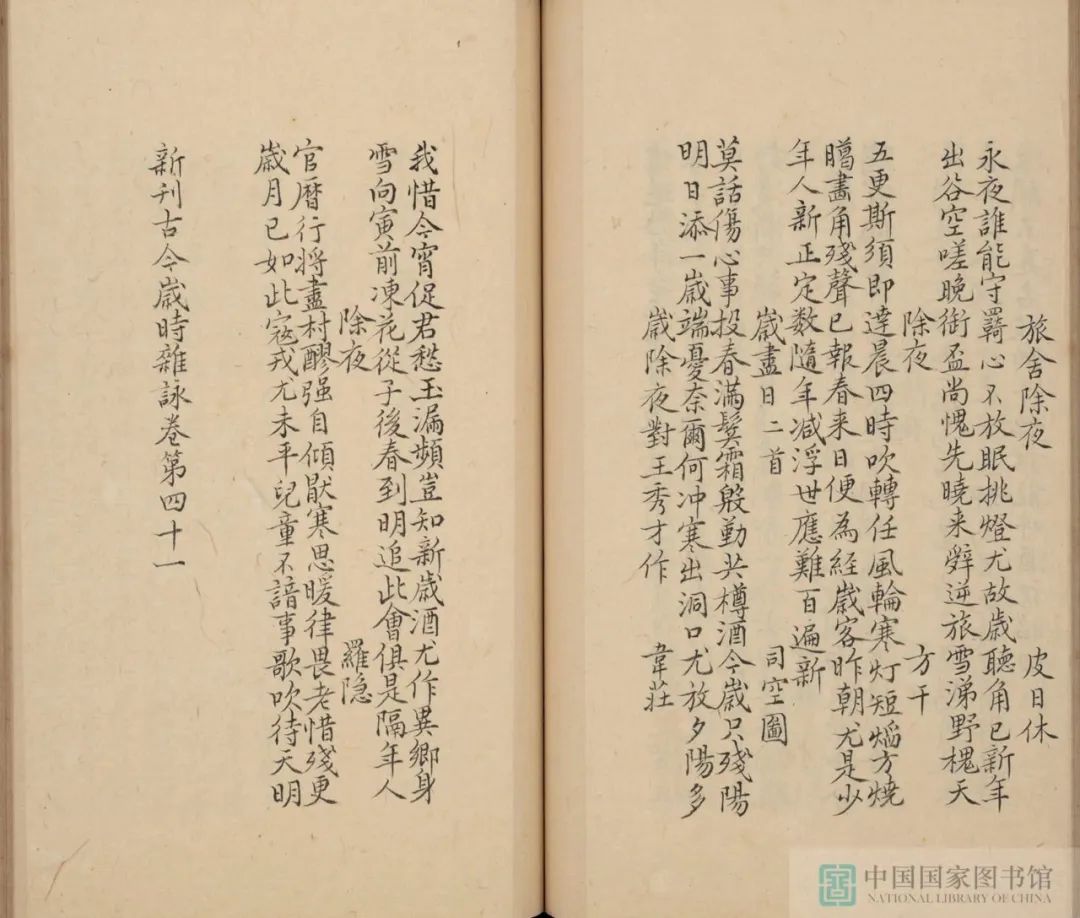 旅舍除夜 皮日休
永夜誰能守羇心不放眠挑燈尤故歲聽角已新年
出谷空嗟晚銜盃尚愧先曉來辭逆旅雪涕野槐天
除夜 方干
五更斯須即達晨四時吹轉任風輪寒灯短熖方燒
臈畫角殘聲已報春来日便為經歲客昨朝尤是少
年人新正定数隨年減浮世應難百遍新
歲盡日二首 司空圖
莫話傷心事投春滿鬂霜慇勤共樽酒今歲只殘陽
明日添一歲端憂奈爾何冲寒出洞口尤放夕陽多
歲除夜對王秀才作 韋莊
我惜今宵促君愁玉漏頻豈知新歲酒尤作異鄉身
雪向寅前凍花從子後春到明追此會俱是隔年人
除夜 羅隐
官曆行將盡村醪强自傾厭寒思暖律畏老惜殘更
歲月已如此寇戎尤未平兒童不諳事歌吹待天明
新刊古今歲時雜詠卷第四十一
中国国家图书馆
NATIONAL LIBRARY OF CHINA